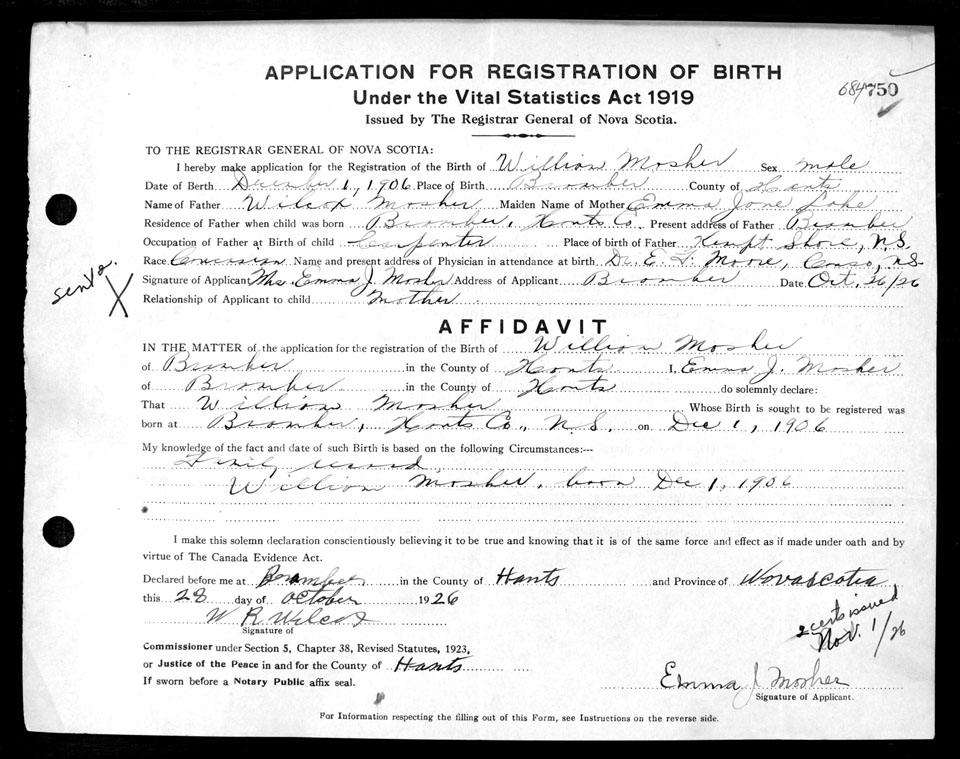 APPLICATION FOR REGISTRATION OF BIRTH
684 750
Under the Vital Statistics Act 1919
Issued by The Registrar General of Nova Scotia.
TO THE REGISTRAR GENERAL OF NOVA SCOTIA:
I hereby make application for the Registration of the Birth of William Mosher Sex male
Date of Berth December 1, 1906 Place of Birth Bramber County of Hants
Name of Father Wilcox Mosher Maiden Name of Mother Emma Jane Lake
Residence of Father when child was born Bramber, Hants Co. Present address of Father Bramber
Occupation of Father at Birth of child Carpenter Place of birth of Father Kempt Shore, N.S.
Race Name and present address of Physician in attendance at birth Dr. E. F. Moore, Canso, N.S.
sent a.
X
Signature of Applicant Mrs. Emma J. Mosher Address of Applicant Bramber Date Oct, 26/26
Relationship of Applicant to child Mother
AFFIDAVIT
IN THE MATTER of the application for the registration of the Birth of William Mosher
of Bramber in the County of Hants I, Emma J. Mosher
of Bramber in the County of Hants do solemnly declare:
That William Mosher Whose Birth is sought to be registered was
born at Bramber, Hants Co., N.S. on Dec 1, 1906
My knowledge of the fact and date of such Birth is based on the following Circumstances:---
Family record.
William Mosher, born Dec 1, 1906
I make this solemn declaration conscientiously believing it to be true and knowing that it is of the same force and effect as if made under oath and by
virtue of The Canada Evidence Act.
Declared before me at Bramber in the County of Hants and Province of Nova Scotia
this 28 day of October 1926
W R Wilcox
Signature of
2 certs issued
Nov. 1/26
Commissioner under Section 5, Chapter 38, Revised Statutes, 1923,
or Justice of the Peace in and for the County of Hants
If sworn before a Notary Public affix seal.
Emma J Mosher
Signature of Applicant.
For Information respecting the filling out of this Form, see Instructions on the reverse side.